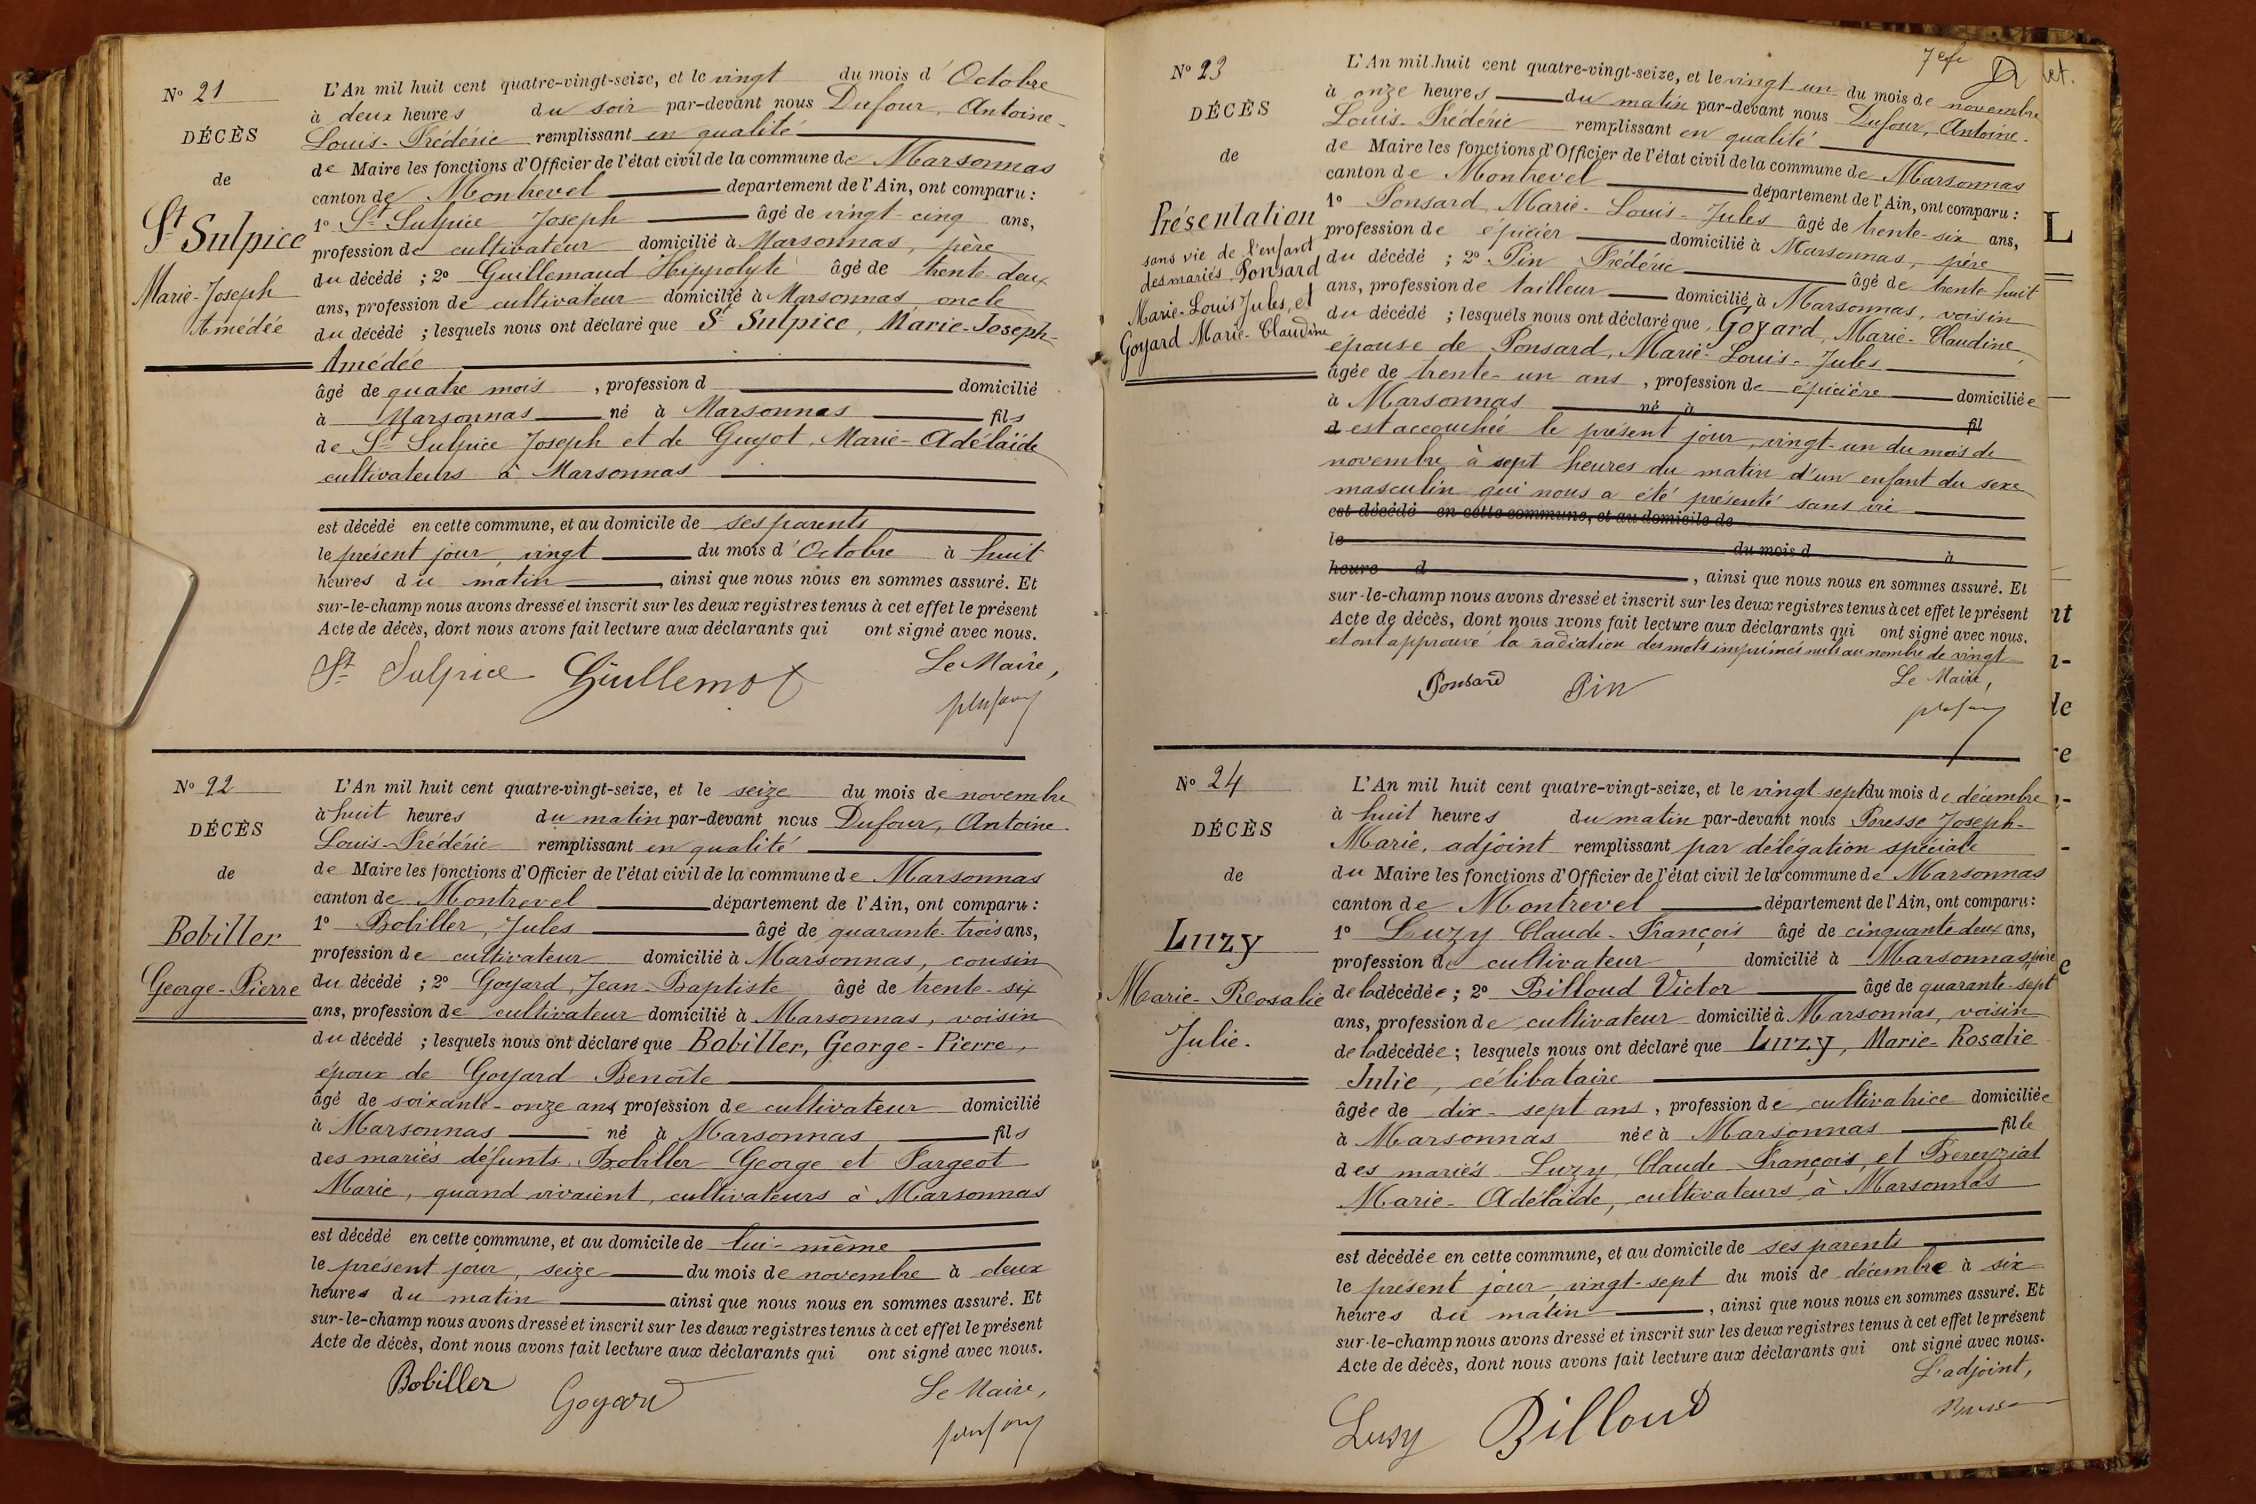 N° 21
DÉCÈS
de
St Sulpice
Marie-Joseph
Amédée
L'An mil huit cent quatre-vingt-seize, et le vingt du mois d'Octobre
à deux heures du soir par-devant nous Dufour, Antoine-
Louis-Frédéric remplissant en qualité
de Maire les fonctions d'Officier de l'état civil de la commune de Marsonnas
canton de Montrevel département de l'Ain, ont comparu :
1° St Sulpice Joseph âgé de vingt-cinq ans,
profession de cultivateur domicilié à Marsonnas, père
du décédé ; 2° Guillemaud Hippolyte âgé de trente-deux
ans, profession de cultivateur domicilié à Marsonnas, oncle
du décédé ; lesquels nous ont déclaré que St Sulpice, Marie-Joseph-
Amédée
âgé de quatre mois, profession d domicilié
à Marsonnas né à Marsonnas fils
de St Sulpice Joseph et de Guyot, Marie-Adélaïde
cultivateurs à Marsonnas
est décédé en cette commune, et au domicile de ses parents
le présent jour, vingt du mois d'Octobre à huit
heures du matin, ainsi que nous nous en sommes assuré. Et
sur-le-champ nous avons dressé et inscrit sur les deux registres tenus à cet effet le présent
Acte de décès, dont nous avons fait lecture aux déclarants qui ont signé avec nous.
St Sulpice Guillemot Le Maire,
N° 22
DÉCÈS
de
Bobiller
George-Pierre
L'An mil huit cent quatre-vingt-seize, et le seize du mois de novembre
à huit heures du matin par-devant nous Dufour, Antoine-
Louis-Frédéric remplissant en qualité
de Maire les fonctions d'Officier de l'état civil de la commune de Marsonnas
canton de Montrevel département de l'Ain, ont comparu :
1° Bobiller, Jules âgé de quarante-trois ans,
profession de cultivateur domicilié à Marsonnas, cousin
du décédé ; 2° Goyard, Jean-Baptiste âgé de trente-six
ans, profession de cultivateur domicilié à Marsonnas, voisin
du décédé ; lesquels nous ont déclaré que Bobiller, George-Pierre,
époux de Goyard Benoîte
âgé de soixante-onze ans profession de cultivateur domicilié
à Marsonnas né à Marsonnas fils
des mariés défunts, Bobiller George et Fargeot
Marie, quand vivaient, cultivateurs à Marsonnas
est décédé en cette commune, et au domicile de lui-même
le présent jour, seize du mois de novembre à deux
heures du matin ainsi que nous nous en sommes assuré. Et
sur-le-champ nous avons dressé et inscrit sur les deux registres tenus à cet effet le présent
Acte de décès, dont nous avons fait lecture aux déclarants qui ont signé avec nous.
Bobiller Goyard Le Maire,
N° 23
DÉCÈS
de
Présentation
sans vie de l'enfant
des mariés Ponsard
Marie-Louis Jules, et
Goyard Marie-Claudine
L'An mil huit cent quatre-vingt-seize, et le vingt un du mois de novembre
à onze heures du matin par-devant nous Dufour, Antoine-
Louis-Frédéric remplissant en qualité
de Maire les fonctions d'Officier de l'état civil de la commune de Marsonnas
canton de Montrevel département de l'Ain, ont comparu :
1° Ponsard, Marie-Louis-Jules âgé de trente-six ans,
profession de épicier domicilié à Marsonnas, père
du décédé ; 2° Pin Frédéric âgé de trente huit
ans, profession de tailleur domicilié à Marsonnas, voisin
du décédé ; lesquels nous ont déclaré que Goyard, Marie-Claudine,
épouse de Ponsard, Marie-Louis-Jules
âgée de trente-un ans, profession de épicière domiciliée
à Marsonnas né à fil
d est accouchée le présent jour, vingt-un du mois de
novembre à sept heures du matin d'un enfant du sexe
masculin qui nous a été présenté sans vie
est décédé en cette commune, et au domicile de
le du mois d à
heure d, ainsi que nous nous en sommes assuré. Et
sur-le-champ nous avons dressé et inscrit sur les deux registres tenus à cet effet le présent
Acte de décès, dont nous avons fait lecture aux déclarants qui ont signé avec nous.
et ont approuvé la radiation des mots imprimés nuls au nombre de vingt
Ponsard Pin Le Maire,
N° 24
DÉCÈS
de
Luzy
Marie-Rosalie
Julie.
L'An mil huit cent quatre-vingt-seize, et le vingt sept du mois de décembre
à huit heures du matin par-devant nous Presse Joseph-
Marie, adjoint remplissant par délégation spéciale
du Maire les fonctions d'Officier de l'état civil de la commune de Marsonnas
canton de Montrevel département de l'Ain, ont comparu :
1° Luzy Claude-François âgé de cinquante deux ans,
profession de cultivateur domicilié à Marsonnas, père
de la décédée ; 2° Billoud Victor âgé de quarante-sept
ans, profession de cultivateur domicilié à Marsonnas, voisin
de la décédée ; lesquels nous ont déclaré que Luzy, Marie-Rosalie
Julie, célibataire
âgée de dix-sept ans, profession de cultivatrice domiciliée
à Marsonnas née à Marsonnas fille
des mariés Luzy, Claude-François, et Bereyziat
Marie-Adélaïde, cultivateurs, à Marsonnas
est décédée en cette commune, et au domicile de ses parents
le présent jour, vingt-sept du mois de décembre à six
heures du matin, ainsi que nous nous en sommes assuré. Et
sur-le-champ nous avons dressé et inscrit sur les deux registres tenus à cet effet le présent
Acte de décès, dont nous avons fait lecture aux déclarants qui ont signé avec nous.
L'adjoint,
Luzy Billoud